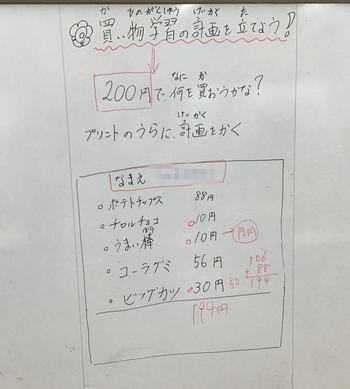 買い物学習の計画を立てよう!
か ものがくしゅう けいかく た
200円で、何を買おうかな?
なに か
プリントのうらに、計画をかく
けいかく
なまえ
ポテトチップス 88円
チロルチョコ 10円
うまい棒 10円
コーラグミ 56円
ビッグカツ 30円
106
+ 88
194
50
194円